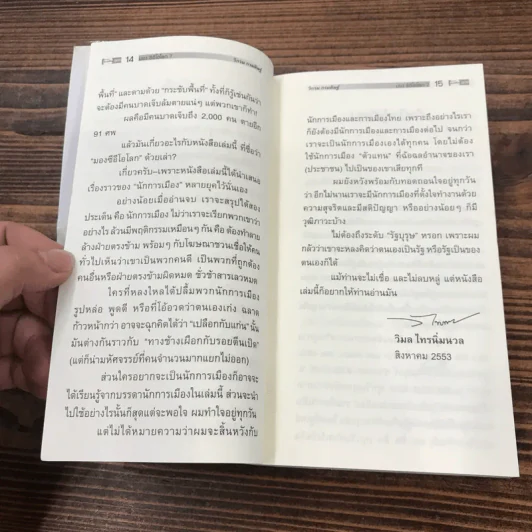 14
พื้นที่" และตามด้วย "กระชับพื้นที่" ทั้งที่ก็รู้เช่นกันว่า
จะต้องมีคนบาดเจ็บล้มตายแน่ๆ แต่พวกเขาก็ทำ!
ผลคือมีคนบาดเจ็บถึง 2,000 คน ตายอีก
91 ศพ
แล้วมันเกี่ยวอะไรกับหนังสือเล่มนี้ ที่ชื่อว่า
"มองซีอีโอโลก" ด้วยเล่า?
เกี่ยวครับ–เพราะหนังสือเล่มนี้ได้นำเสนอ
เรื่องราวของ "นักการเมือง" หลายยุคไว้นั่นเอง
อย่างน้อยเมื่ออ่านจบ เราจะสรุปได้สอง
ประเด็น คือ นักการเมือง ไม่ว่าเราจะเรียกพวกเขาว่า
อย่างไร ล้วนมีพฤติกรรมเหมือนๆ กัน คือ ต้องทำลาย
ล้างฝ่ายตรงข้าม พร้อมๆ กับโฆษณาชวนเชื่อให้คน
ทั่วไปเห็นว่าเขาเป็นพวกคนดี เป็นพวกที่ถูกต้อง
คนอื่นหรือฝ่ายตรงข้ามผิดหมด ชั่วช้าสารเลวหมด
ใครที่หลงใหลได้ปลื้มพวกนักการเมือง
รูปหล่อ พูดดี หรือที่โอ้อวดว่าตนเองเก่ง ฉลาด
ก้าวหน้ากว่า อาจจะฉุกคิดได้ว่า "เปลือกกับแก่น" นั้น
มันต่างกันราวกับ "ทางช้างเผือกกับรอยตีนเป็ด"
(แต่ก็น่ามหัศจรรย์ที่คนจำนวนมากแยกไม่ออก)
ส่วนใครอยากจะเป็นนักการเมืองก็อาจจะ
ได้เรียนรู้จากบรรดานักการเมืองในเล่มนี้ ส่วนจะนำ
ไปใช้อย่างไรนั้นก็สุดแต่จะพอใจ ผมทำใจอยู่ทุกวัน
แต่ไม่ได้หมายความว่าผมจะสิ้นหวังกับ
15
นักการเมืองและการเมืองไทย เพราะถึงอย่างไรเรา
ก็ยังต้องมีนักการเมืองและการเมืองต่อไป จนกว่า
เราจะเป็นนักการเมืองเองได้ทุกคน โดยไม่ต้อง
ใช้นักการเมือง "ตัวแทน" ที่ฉ้อฉลอำนาจของเรา
(ประชาชน) ไปเป็นของเขาเสียทุกที
ผมยังหวังพร้อมกับทอดถอนใจอยู่ทุกวัน
ว่า อีกไม่นานเราจะมีนักการเมืองที่ตั้งใจทำงานด้วย
ความสุจริตและมีสติปัญญา หรืออย่างน้อยๆ ก็มี
วุฒิภาวะบ้าง
ไม่ต้องถึงระดับ "รัฐบุรุษ" หรอก เพราะผม
กลัวว่าเขาจะหลงคิดว่าตนเองเป็นรัฐ หรือรัฐเป็นของ
ตนเองก็ได้
แม้ท่านจะไม่เชื่อ และไม่ลบหลู่ แต่หนังสือ
เล่มนี้ก็อยากให้ท่านอ่านมัน
วิมล ไทรนิ่มนวล
สิงหาคม 2553